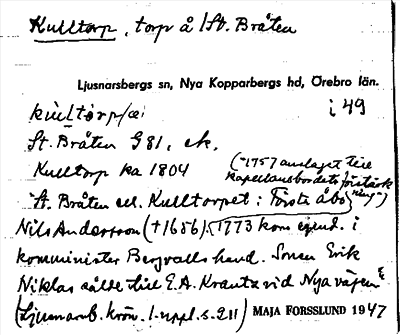 Kulltorp, torp å St. Bråten
Ljusnarsbergs sn, Nya Kopparbergs hd, Örebro län.
kultorp/æ i 49
St. Bråten G 81, ek.
Kulltorp ka 1804 (1757 anslaget till
kapellansbordets förstärkning)
St. Bråten ell. Kulltorpet: Förste åbo
Nils Andersson (†1656). 1773 kom egend. i
komminister Bergvalls hand. Sonen Erik
Niklas sålde till E.A. Krantz vid Nya vägen
(Ljusnarsb. krön. 1. uppl. s. 211) MAJA FORSSLUND 1947